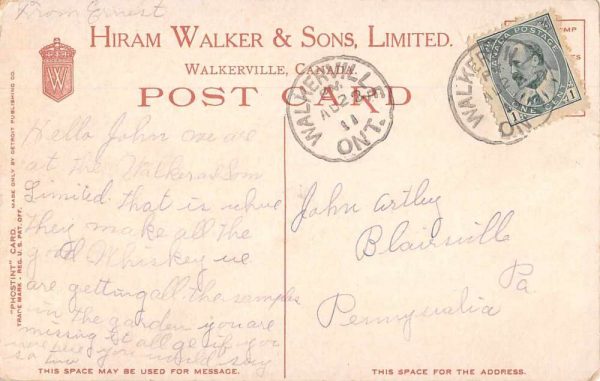 From Ernest
HIRAM WALKER & SONS, LIMITED.
WALKERVILLE, CANADA.
POST CARD
W
CANADA POSTAGE
1 1
WALKERVILLE
PM
AU 28
11
ONT.
WALKERVILLE
ONT.
MADE ONLY BY DETROIT PUBLISHING CO.
"PHOSTINT" CARD
TRADE MARK - REG. U. S. PAT. OFF.
Hello John we are
at the Walker & Son
Limited that is where
they make all the
good Whiskey we
are getting all the samples
in the garden you are
missing it all if you
were here you would say
so too
John Artley
Blairsville
Pa
Pennsyvalia
THIS SPACE MAY BE USED FOR MESSAGE.
THIS SPACE FOR THE ADDRESS.